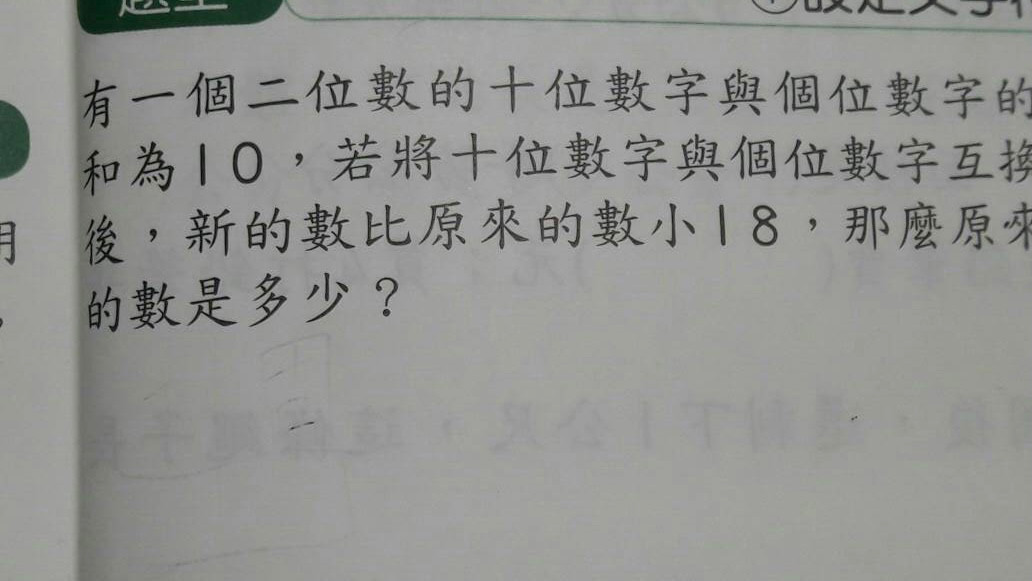 題型
①設定文字
有一個二位數的十位數字與個位數字的
和為10，若將十位數字與個位數字互換
後，新的數比原來的數小18，那麼原來
的數是多少？